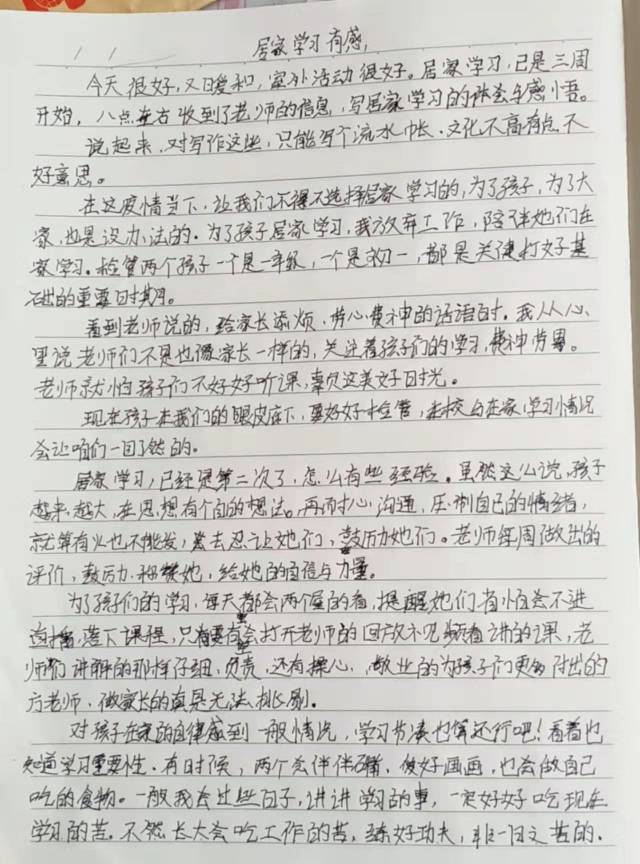 居家学习有感
今天很好,又日爱和,室外活动很好。居家学习,已是三周
开始,八点左右收到了老师的信息,写居家学习的体会与感悟。
说起来,对写作这些,只能写个流水帐、文化不高有点不
好意思。
在这疫情当下,让我们不得不选择居家学习的,为了孩子,为了大
家,也是没办法的。为了孩子居家学习,我放弃工作,陪伴她们在
家学习。检管两个孩子一个是一年级,一个是初一,都是关健打好基
础的重要时期。
看到老师说的,给家长添烦、劳心费神的话语时。我从心
里说老师们不是也像家长一样的,关注着孩子们的学习,费神劳累。
老师就怕孩子们不好好听课,辜负这美好时光。
现在孩子在我们的眼皮底下,要好好检管,在校与在家学习情况
会让咱们一目了然的。
居家学习,已经是第二次了,怎么有些经验。虽然这么说,孩子
越来越大,在思想有个的想法。再耐心沟通,压制自己的情绪,
就算有火也不能发,忍让她们,鼓历她们。老师每周做出的
评价,鼓历和赞她,给她的自信与力量。
为了孩子们的学习,每天都会两个屋的看,提醒她们,有怕会不进
直播,落下课程,只有打开老师的回放视频看讲的课,老
师们讲解的那样仔细,负责,还有操心,敬业的为孩子们更多付出的
方老师,做家长的真是无法挑剔。
对孩子在家的自律感到一般情况,学习节凑也算还行吧!看着也
知道学习重要性。有时候,两个会伴伴嘴,做好画画,也会做自己
吃的食物。一般我会过些日子,讲讲学习的事,一定好好吃现在
学习的苦。不然长大会吃工作的苦,练好功夫,非一日之苦的.